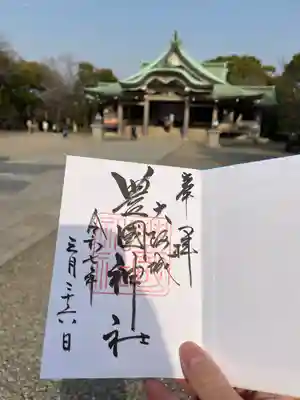 奉拝
大坂城
豊國神社
令和七年
三月二十六日